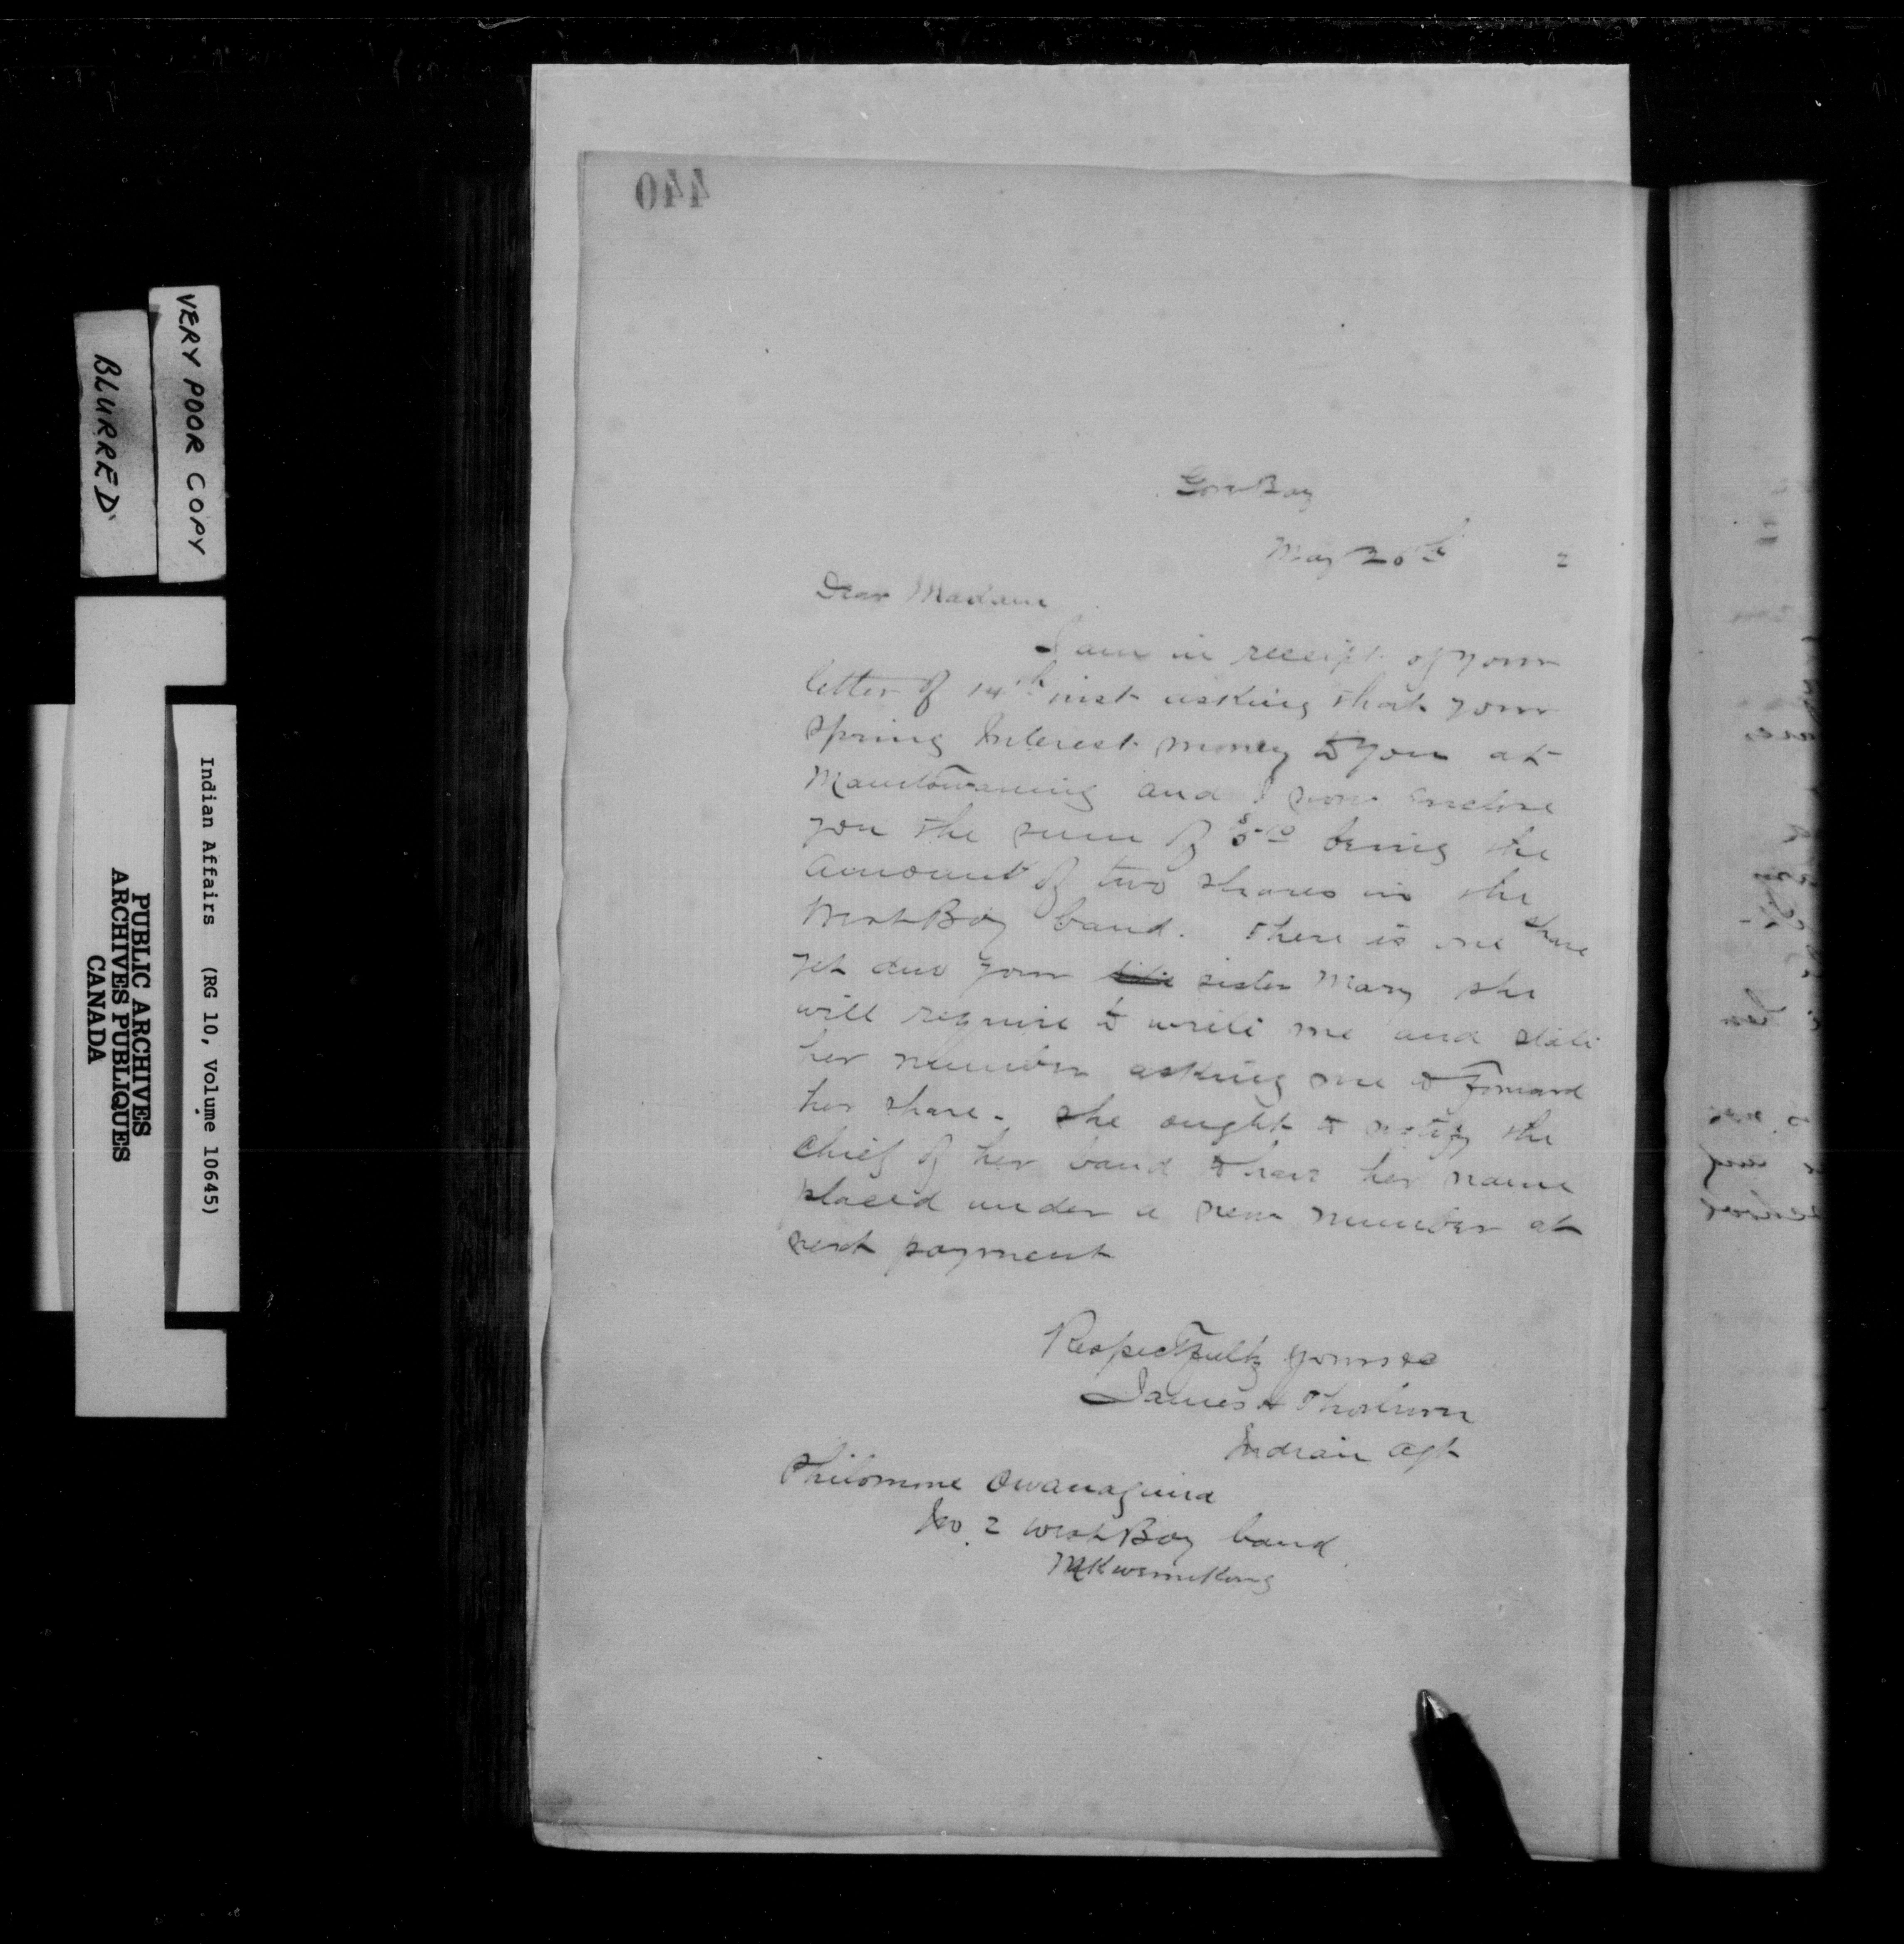 440
Gore Bay
May 20th 2
Dear Madam
I am in receipt of your
letter of 14th inst asking that your
spring Interest money to you at
Manitowaning and I now enclose
you the sum of being the
amount of two shares in the
West Bay band. There is one share
yet due your sister Mary she
will require to write me and state
her number asking me to forward
her share. She ought to notify the
chief of her band to have her name
placed under a new number at
next payment
Respectfully yours &c
James H Thorburn
Indian Agt
Philomene Owanaquid
No. 2 West Bay band
MKwemikong
VERY POOR COPY
BLURRED
Indian Affairs (RG 10, Volume 10645)
PUBLIC ARCHIVES
ARCHIVES PUBLIQUES
CANADA